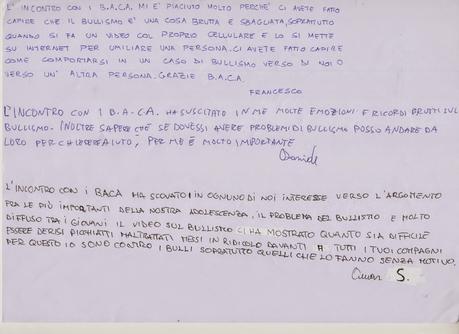 L'INCONTRO CON I B.A.C.A. MI E' PIACIUTO MOLTO PERCHE' CI AVETE FATTO
CAPIRE CHE IL BULLISMO E' UNA COSA BRUTTA E SBAGLIATA, SOPRATTUTTO
QUANDO SI FA UN VIDEO COL PROPRIO CELLULARE E LO SI METTE
SU INTERNET PER UMILIARE UNA PERSONA. CI AVETE FATTO CAPIRE
COME COMPORTARSI IN UN CASO DI BULLISMO VERSO DI NOI O
VERSO UN' ALTRA PERSONA. GRAZIE B.A.C.A.
FRANCESCO
L'INCONTRO CON I B-A-C-A. HA SUSCITATO IN ME MOLTE EMOZIONI E RICORDI BRUTTI SUL
BULLISMO. INOLTRE SAPERE CHE SE DOVESSI AVERE PROBLEMI DI BULLISMO POSSO ANDARE DA
LORO PER CHIEDERE AIUTO, PER ME È MOLTO IMPORTANTE
Daniele
L'INCONTRO CON I BACA HA SCOVATO IN OGNUNO DI NOI INTERESSE VERSO L'ARGOMENTO
FRA LE PIÙ IMPORTANTI DELLA NOSTRA ADOLESCENZA. IL PROBLEMA DEL BULLISMO È MOLTO
DIFFUSO TRA I GIOVANI IL VIDEO SUL BULLISMO CI HA MOSTRATO QUANTO SIA DIFFICILE
ESSERE DERISI PICCHIATI MALTRATTATI MESSI IN RIDICOLO DAVANTI A TUTTI I TUOI COMPAGNI
PER QUESTO IO SONO CONTRO I BULLI SOPRATUTTO QUELLI CHE LO FANNO SENZA MOTIVO.
S.